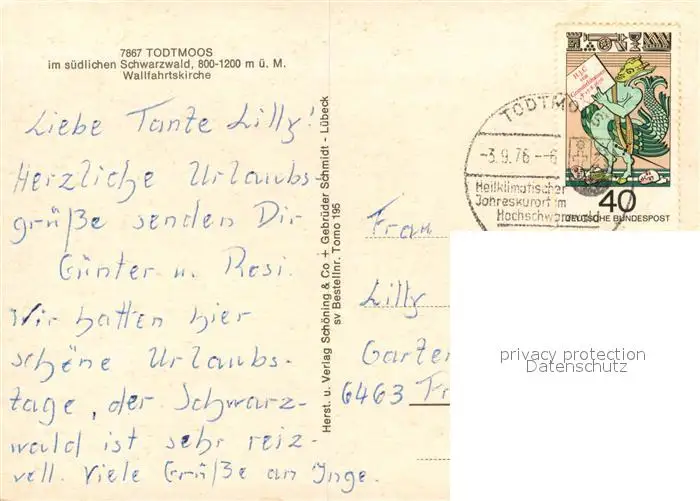 7867 TODTMOOS
im südlichen Schwarzwald, 800-1200 m ü. M.
Wallfahrtskirche
Liebe Tante Lilly!
Herzliche Urlaubs-
grüße senden Dir
Günter u. Rosi.
Wir hatten hier
schöne Urlaubs-
tage, der Schwarz-
wald ist sehr reiz-
voll. Viele Grüße an Inge.
Herst. u. Verlag Schöning & Co + Gebrüder Schmidt - Lübeck
sv Bestellnr. Tomo 195
TODTMOOS
-3.9.76--6
Heilklimatischer
Jahreskurort im
Hochschwarzwald
40
DEUTSCHE BUNDESPOST
Frau
Lilly
Garten
6463 Fr
privacy protection
Datenschutz